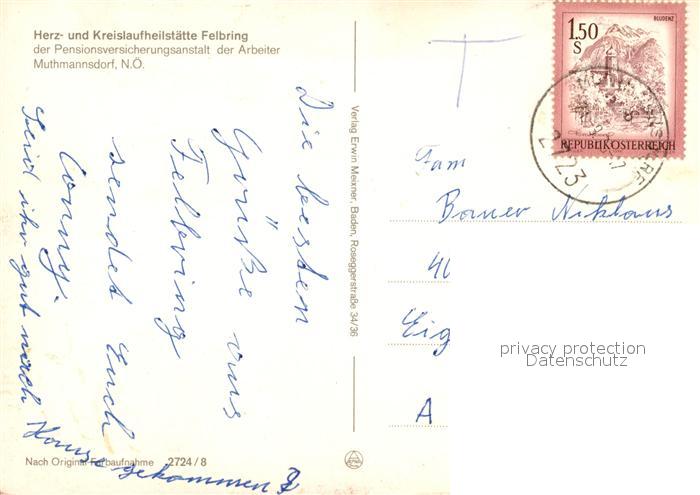 Herz- und Kreislaufheilstätte Felbring
der Pensionsversicherungsanstalt der Arbeiter
Muthmannsdorf, N.Ö.
Die besten
Grüße aus
Felbring
sendet Euch
Conny.
Seid ihr gut nach
Hause gekommen?
Nach Original-Farbaufnahme 2724/8
Verlag Erwin Meixner, Baden, Roseggerstraße 34/36
T
1.50
S
BLUDENZ
REPUBLIK ÖSTERREICH
2723
Fam
Bauer Niklaus
Eig
A
privacy protection
Datenschutz